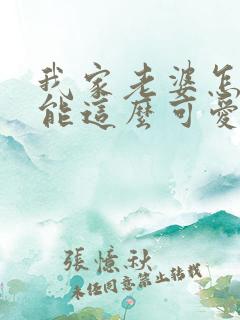 我家老婆怎
能這麼可愛
張憶秋
未经同意禁止转载